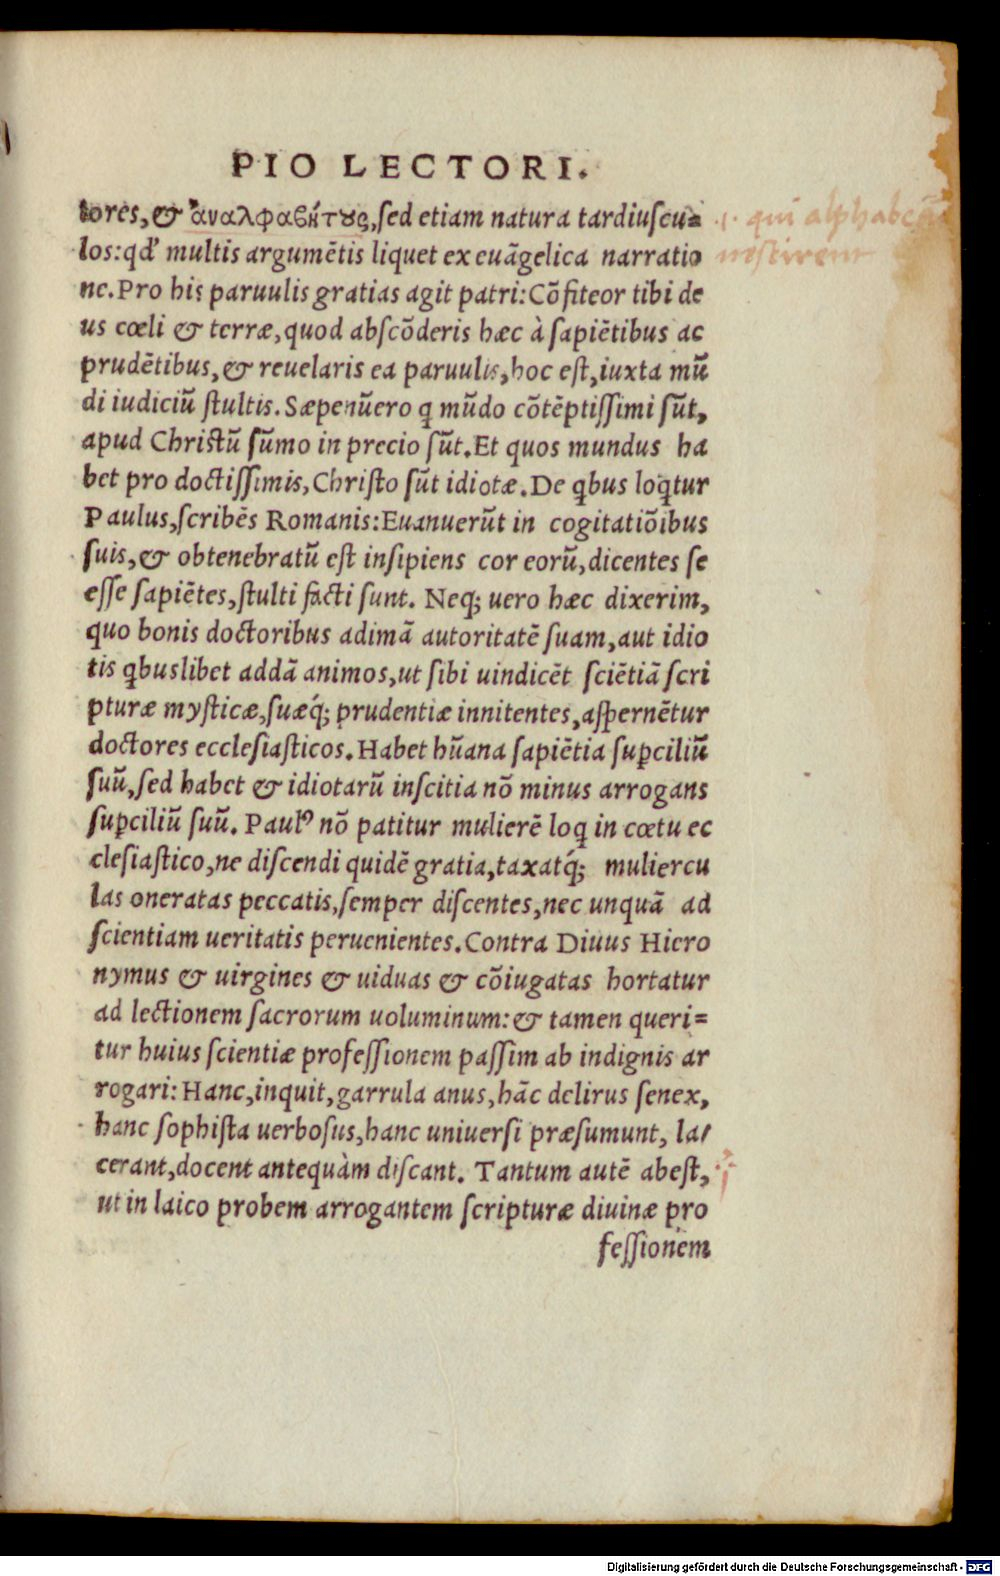 PIO LECTORI.
tores, & ἀναλφαβήτους, sed etiam natura tardiuscu=
los: qđ multis argumētis liquet ex euāgelica narratio
ne. Pro his paruulis gratias agit patri: Cōfiteor tibi de
us cœli & terræ, quod abscōderis hæc à sapiētibus ac
prudētibus, & reuelaris ea paruulis, hoc est, iuxta mū
di iudiciū stultis. Sæpenūero q̃ mūdo cōtēptissimi sūt,
apud Christū sūmo in precio sūt. Et quos mundus ha
bet pro doctissimis, Christo sūt idiotæ. De q̃bus loq̃tur
Paulus, scribēs Romanis: Euanuerūt in cogitatiōibus
suis, & obtenebratū est insipiens cor eorū, dicentes se
esse sapiētes, stulti facti sunt. Neq; uero hæc dixerim,
quo bonis doctoribus adimā autoritatē suam, aut idio
tis q̃buslibet addā animos, ut sibi uindicēt sciētiā scri
pturæ mysticæ, suæq́; prudentiæ innitentes, aspernētur
doctores ecclesiasticos. Habet hūana sapiētia suꝑciliū
suū, sed habet & idiotarū inscitia nō minus arrogans
suꝑciliū suū. Paulꝰ nō patitur mulierē loq̃ in cœtu ec
clesiastico, ne discendi quidē gratia, taxatq́; muliercu
las oneratas peccatis, semper discentes, nec unquā ad
scientiam ueritatis peruenientes. Contra Diuus Hiero
nymus & uirgines & uiduas & cōiugatas hortatur
ad lectionem sacrorum uoluminum: & tamen queri=
tur huius scientiæ professionem passim ab indignis ar
rogari: Hanc, inquit, garrula anus, hāc delirus senex,
hanc sophista uerbosus, hanc uniuersi præsumunt, la
cerant, docent antequàm discant. Tantum autē abest,
ut in laico probem arrogantem scripturæ diuinæ pro
fessionem
.i. qui alphabetū
nescirent
Digitalisierung gefördert durch die Deutsche Forschungsgemeinschaft - DFG